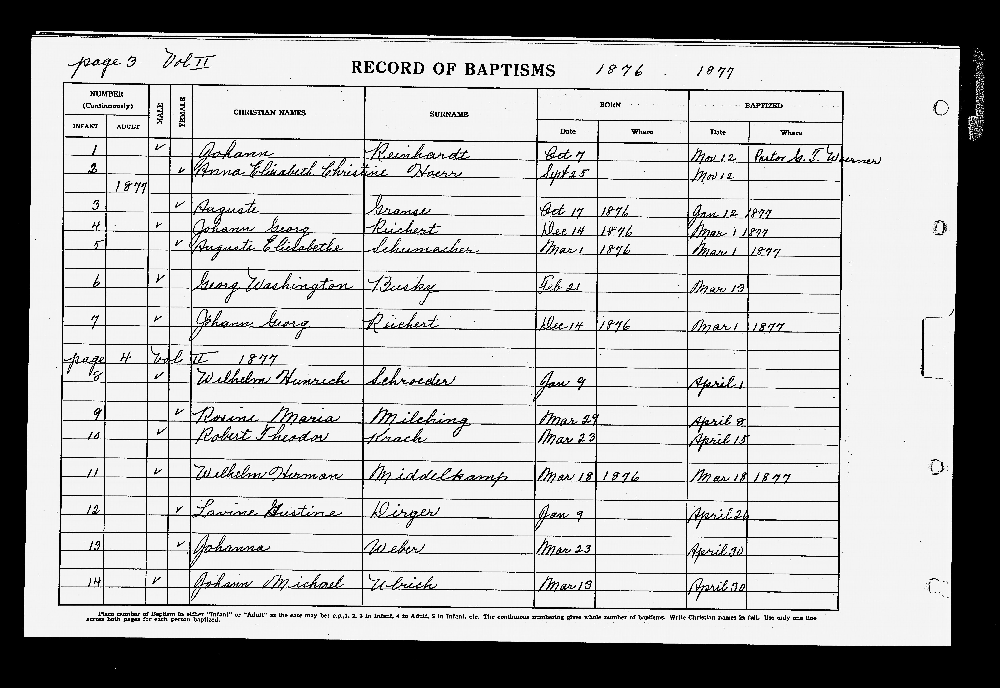 page 3 Vol II RECORD OF BAPTISMS 1876 1877
NUMBER (Continuously) MALE FEMALE CHRISTIAN NAMES SURNAME BORN BAPTIZED
INFANT ADULT Date Where Date Where
1 ✓ Johann Reinhardt Oct 7 Nov 12 Pastor G. T. Woerner
2 ✓ Anna Elisabeth Christine Hoerr Sept 25 Nov 12
1877
3 ✓ Auguste Granse Oct 17 1876 Jan 12 1877
4 ✓ Johann Georg Reichert Dec 14 1876 Mar 1 1877
5 ✓ Auguste Elisabethe Schumacher Mar 1 1876 Mar 1 1877
6 ✓ Georg Washington Busky Feb 21 Mar 13
7 ✓ Johann Georg Reichert Dec 14 1876 Mar 1 1877
page 4 Vol II 1877
8 ✓ Wilhelm Heinrich Schroeder Jan 9 April 1
9 ✓ Rosine Maria Milching Mar 29 April 8
10 ✓ Robert Theodor Krach Mar 23 April 15
11 ✓ Wilhelm Herman Middelkamp Mar 18 1876 Mar 18 1877
12 ✓ Lavine Gustine Dirger Jan 9 April 26
13 ✓ Johanna Weber Mar 23 April 30
14 ✓ Johann Michael Ulrich Mar 13 April 30
Place number of Baptism in either "Infant" or "Adult" as the case may be: e.g., 1, 2, 3 in Infant, 4 in Adult, 5 in Infant, etc. The continuous numbering gives whole number of baptisms. Write Christian names in full. Use only one line
across both pages for each person baptized.